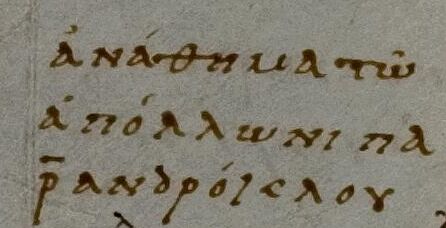 ἀνάθημα τῶ
ἀπόλλωνι πα
ρ̅ ανδρόκλου